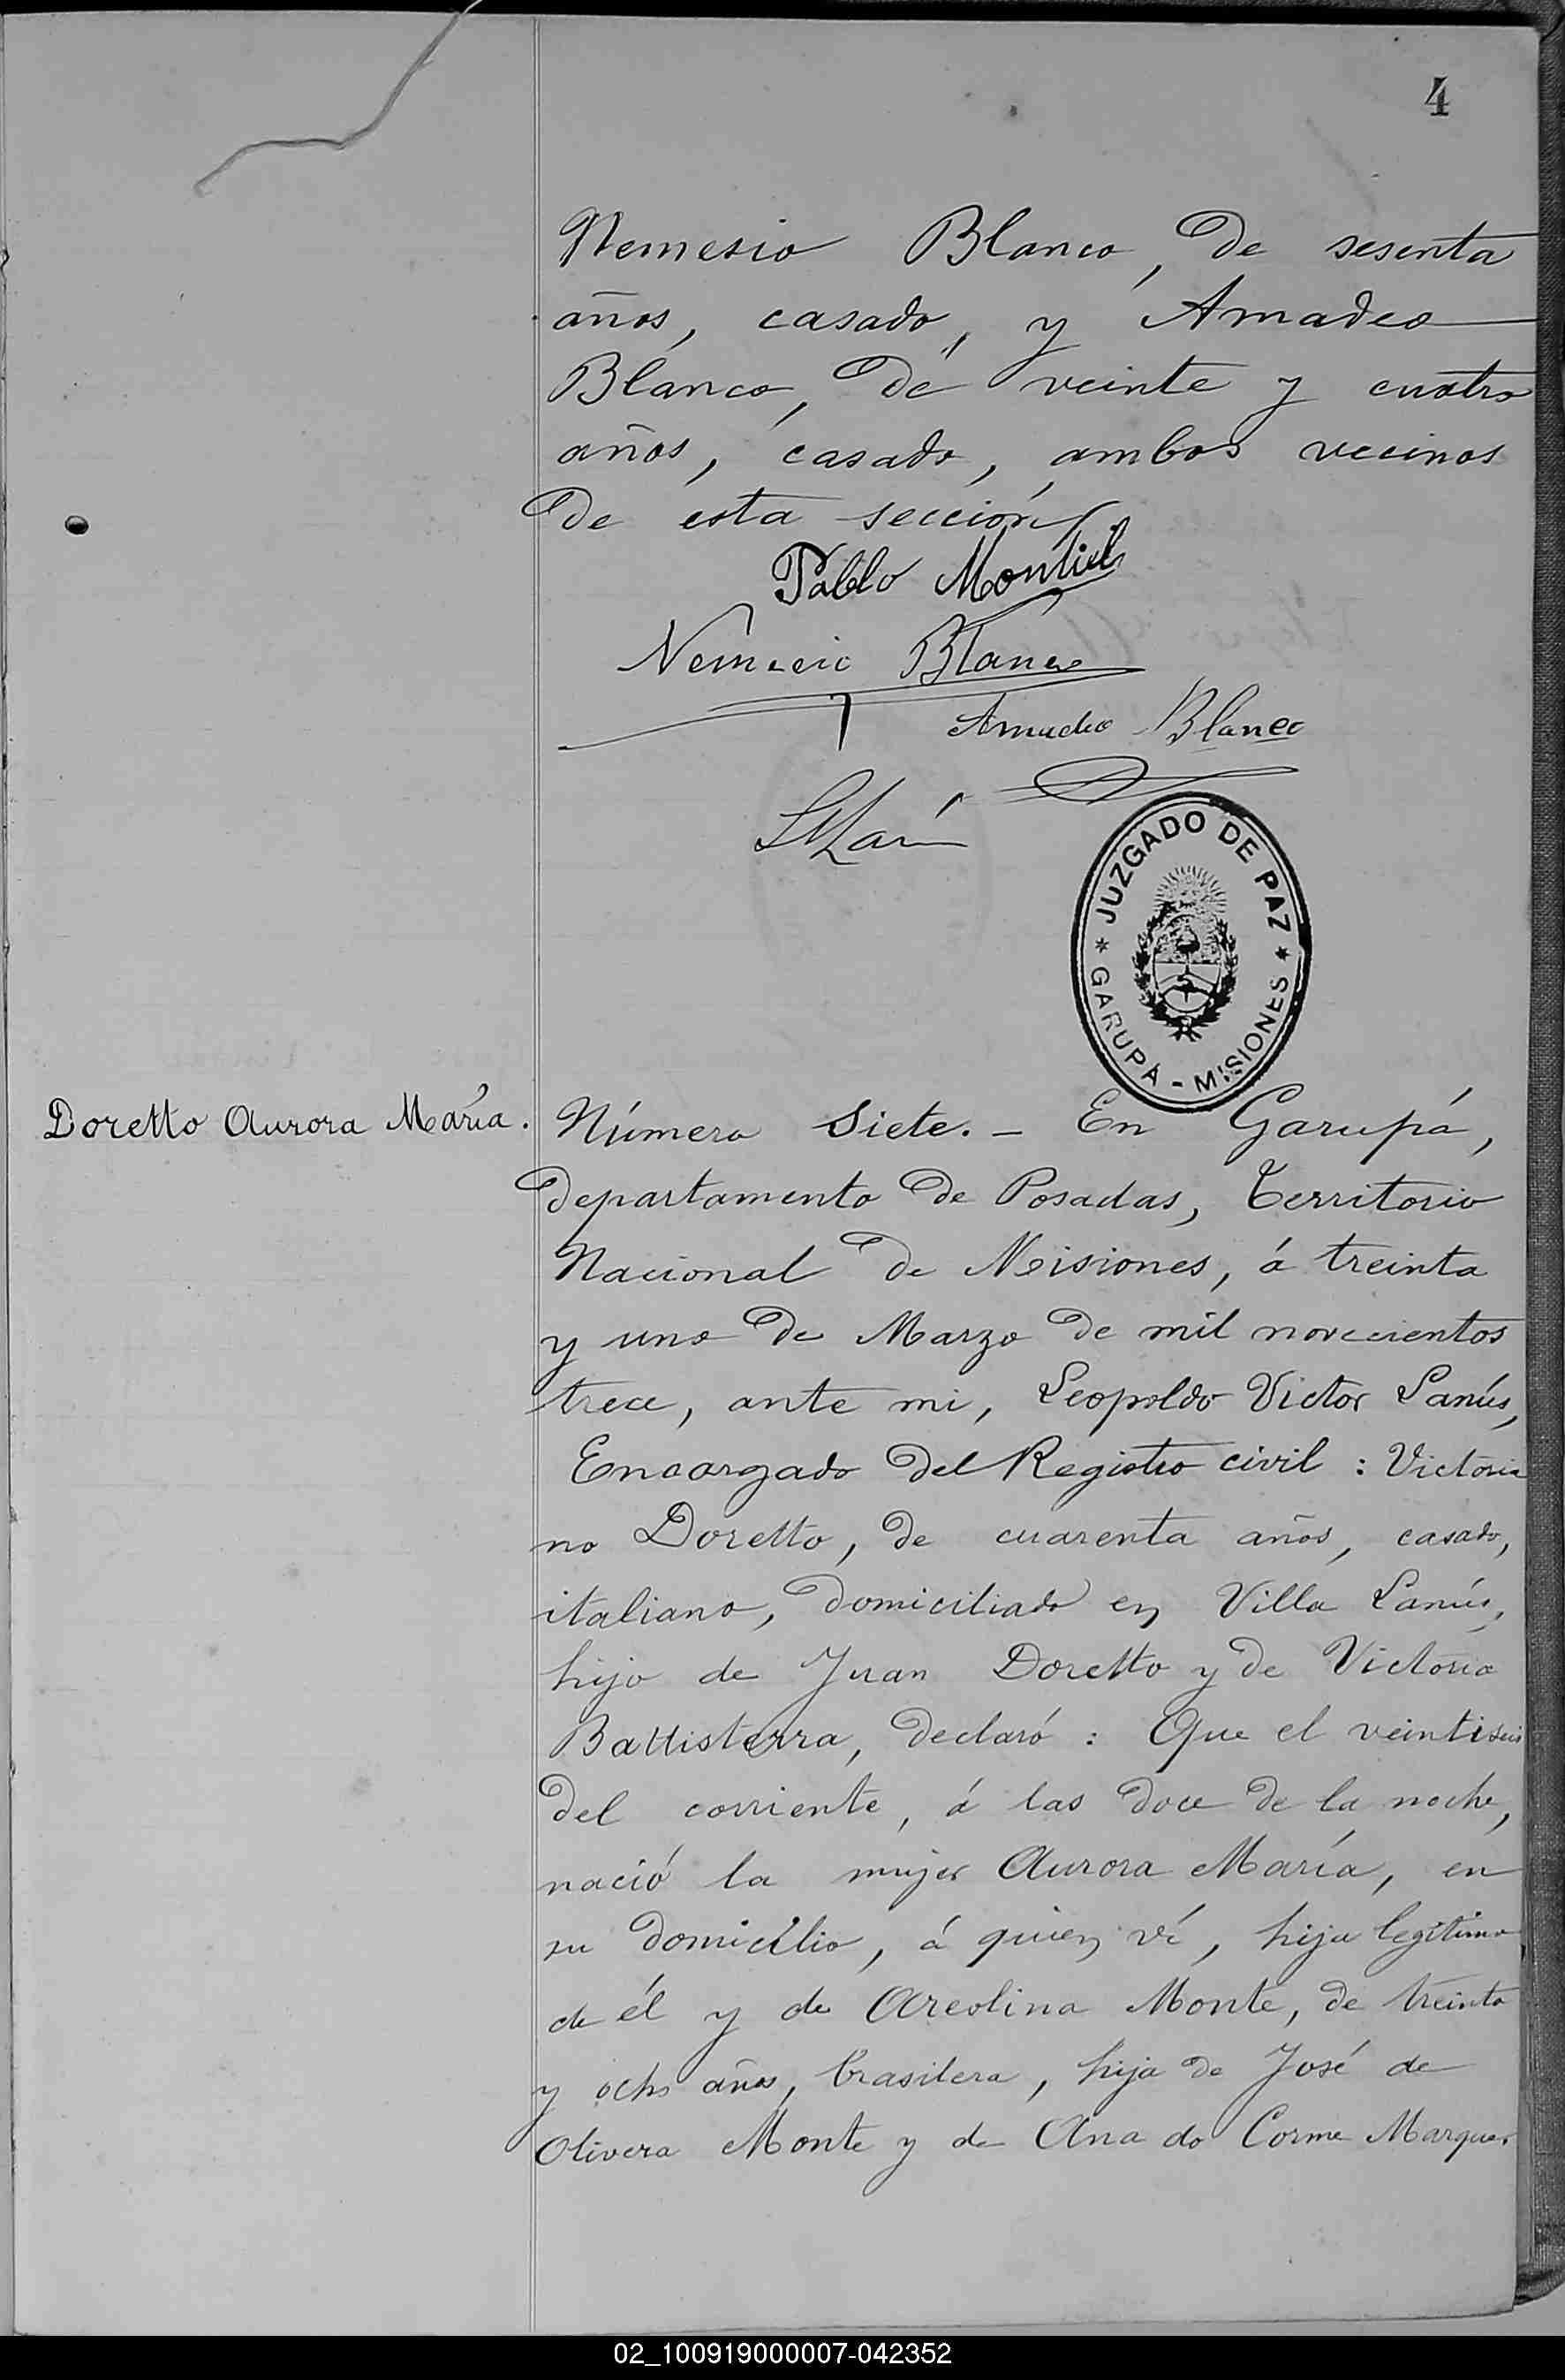 4
Nemesio Blanco, de sesenta
años, casado, y Amadeo
Blanco, de veinte y cuatro
años, casado, ambos vecinos
de esta sección
Pablo Montiel
Nemecio Blanco
Amadeo Blanco
JUZGADO DE PAZ
* GARUPÁ - MISIONES *
Doretto Aurora María.
Número Siete. - En Garupá,
departamento de Posadas, Territorio
Nacional de Misiones, á treinta
y uno de Marzo de mil novecientos
trece, ante mi, Leopoldo Victor Lanús,
Encargado del Registro civil : Victoria
no Doretto, de cuarenta años, casado,
italiano, domiciliado en Villa Lanús,
hijo de Juan Doretto y de Victoria
Battisterra, declaró : Que el veintiseis
del corriente, á las doce de la noche,
nació la mujer Aurora María, en
su domicilio, á quien ví, hija legítima
de él y de Areolina Monte, de treinta
y ocho años, brasilera, hija de José de
Olivera Monte y de Ana do Corme Marques
02_100919000007-042352